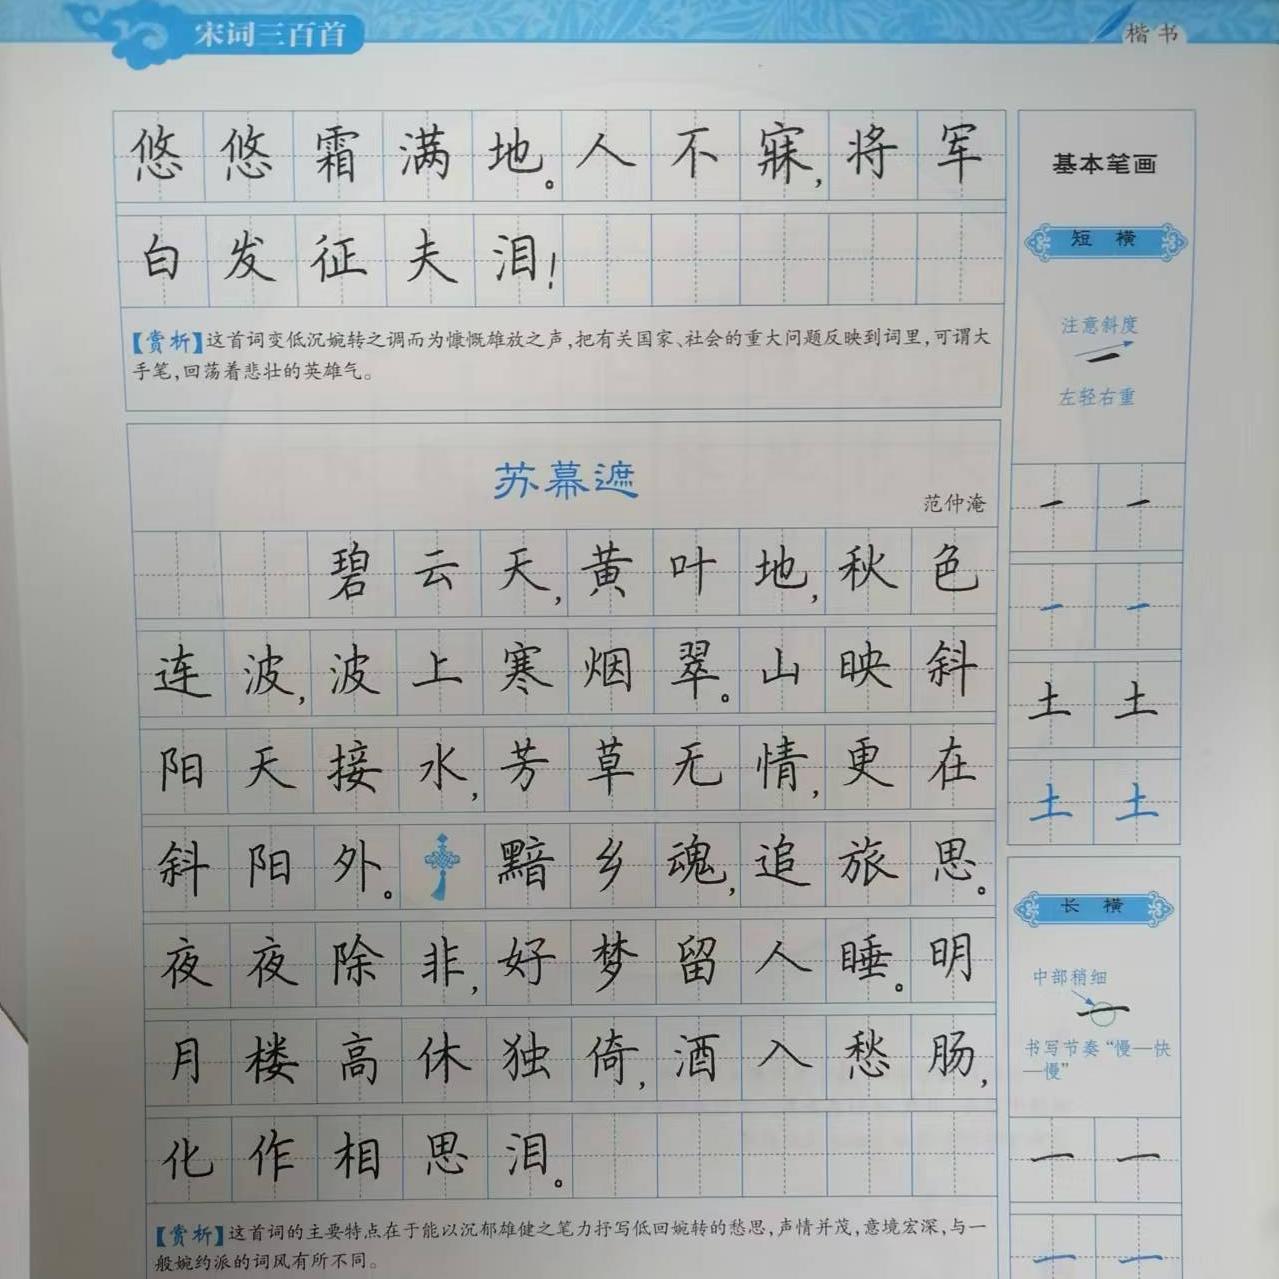 宋词三百首
楷书
悠悠霜满地。人不寐,将军
白发征夫泪!
【赏析】这首词变低沉婉转之调而为慷慨雄放之声,把有关国家、社会的重大问题反映到词里,可谓大
手笔,回荡着悲壮的英雄气。
苏幕遮
范仲淹
碧云天,黄叶地,秋色
连波,波上寒烟翠。山映斜
阳天接水,芳草无情,更在
斜阳外。黯乡魂,追旅思。
夜夜除非,好梦留人睡。明
月楼高休独倚,酒入愁肠,
化作相思泪。
【赏析】这首词的主要特点在于能以沉郁雄健之笔力抒写低回婉转的愁思,声情并茂,意境宏深,与一
般婉约派的词风有所不同。
基本笔画
短横
注意斜度
左轻右重
一 一
一 一
土 土
土 土
长横
中部稍细
书写节奏“慢—快
—慢”
一 一
一 一